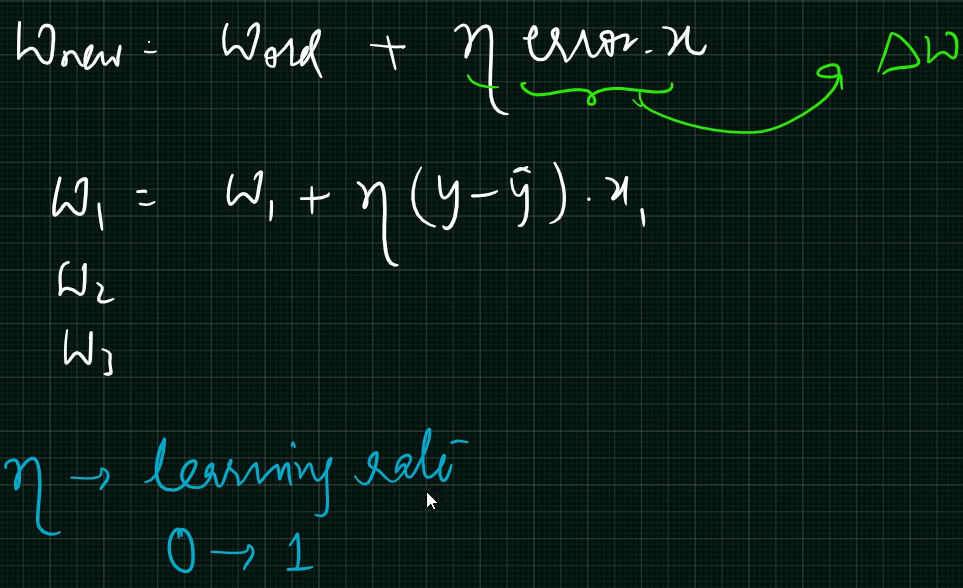 Wnew = Wold + η error.x ΔW
W₁ = W₁ + η(y-ȳ).x₁
W₂
W₃
η → learning rate
0 → 1